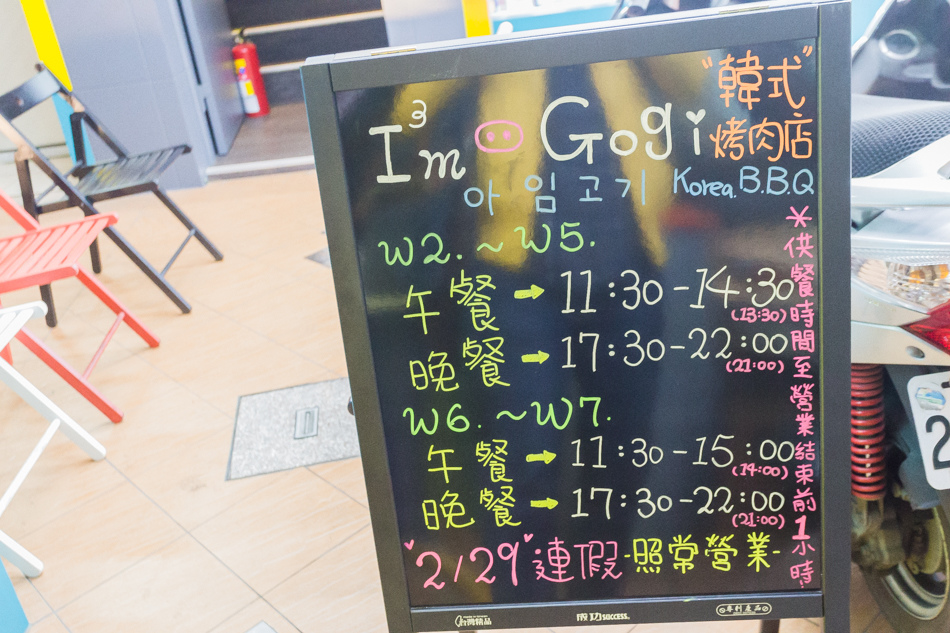 "韓式"
烤肉店
I'm³ Gogi
아임고기 Korea. B.B.Q
W2. ~ W5.
午餐 → 11:30-14:30
(13:30)
晚餐 → 17:30-22:00
(21:00)
W6. ~ W7.
午餐 → 11:30-15:00
(14:00)
晚餐 → 17:30-22:00
(21:00)
2/29 連假-照常營業-
*供餐時間至營業結束前1小時
台灣精品
成功 success.
專利產品
2